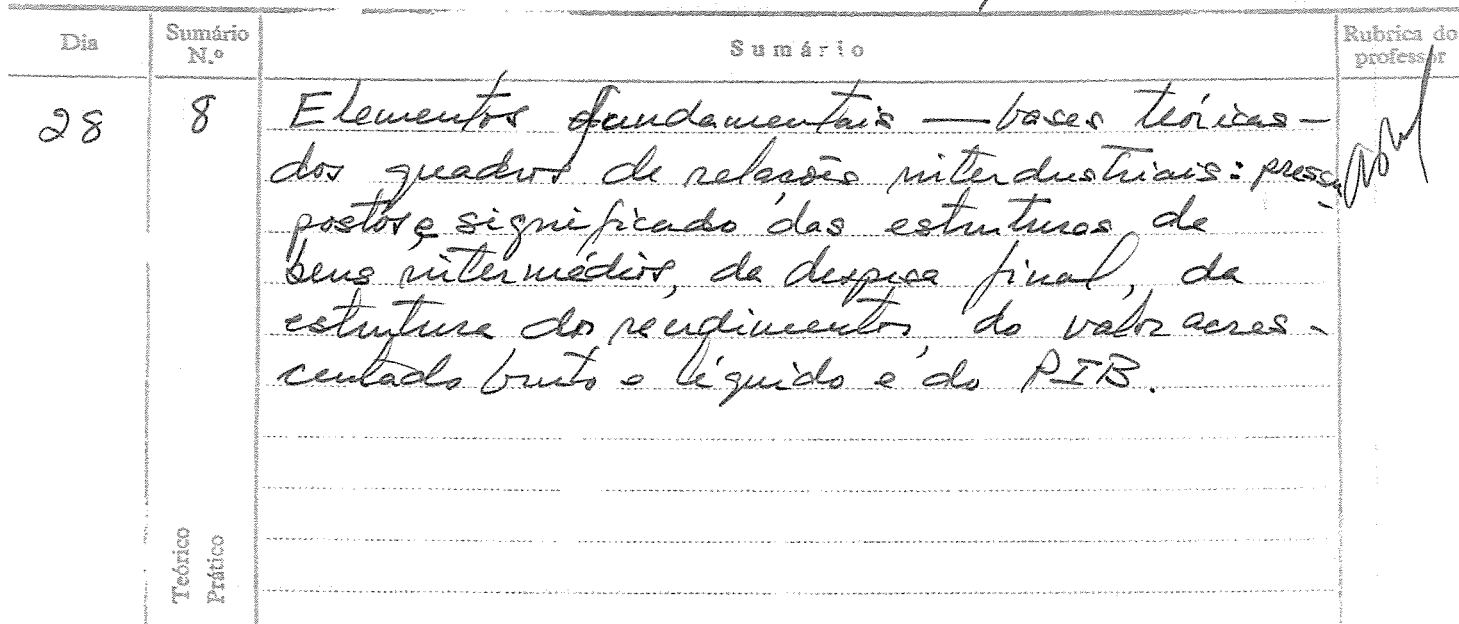 Dia Sumário N.º Sumário Rubrica do professor
28 8 Elementos fundamentais — bases teóricas —
dos quadros de relações interdustriais: pressu-
postos e significado das estruturas de
bens intermédios, da despesa final, da
estrutura dos rendimentos, do valor acres-
centado bruto e líquido e do PIB.
Teórico
Prático